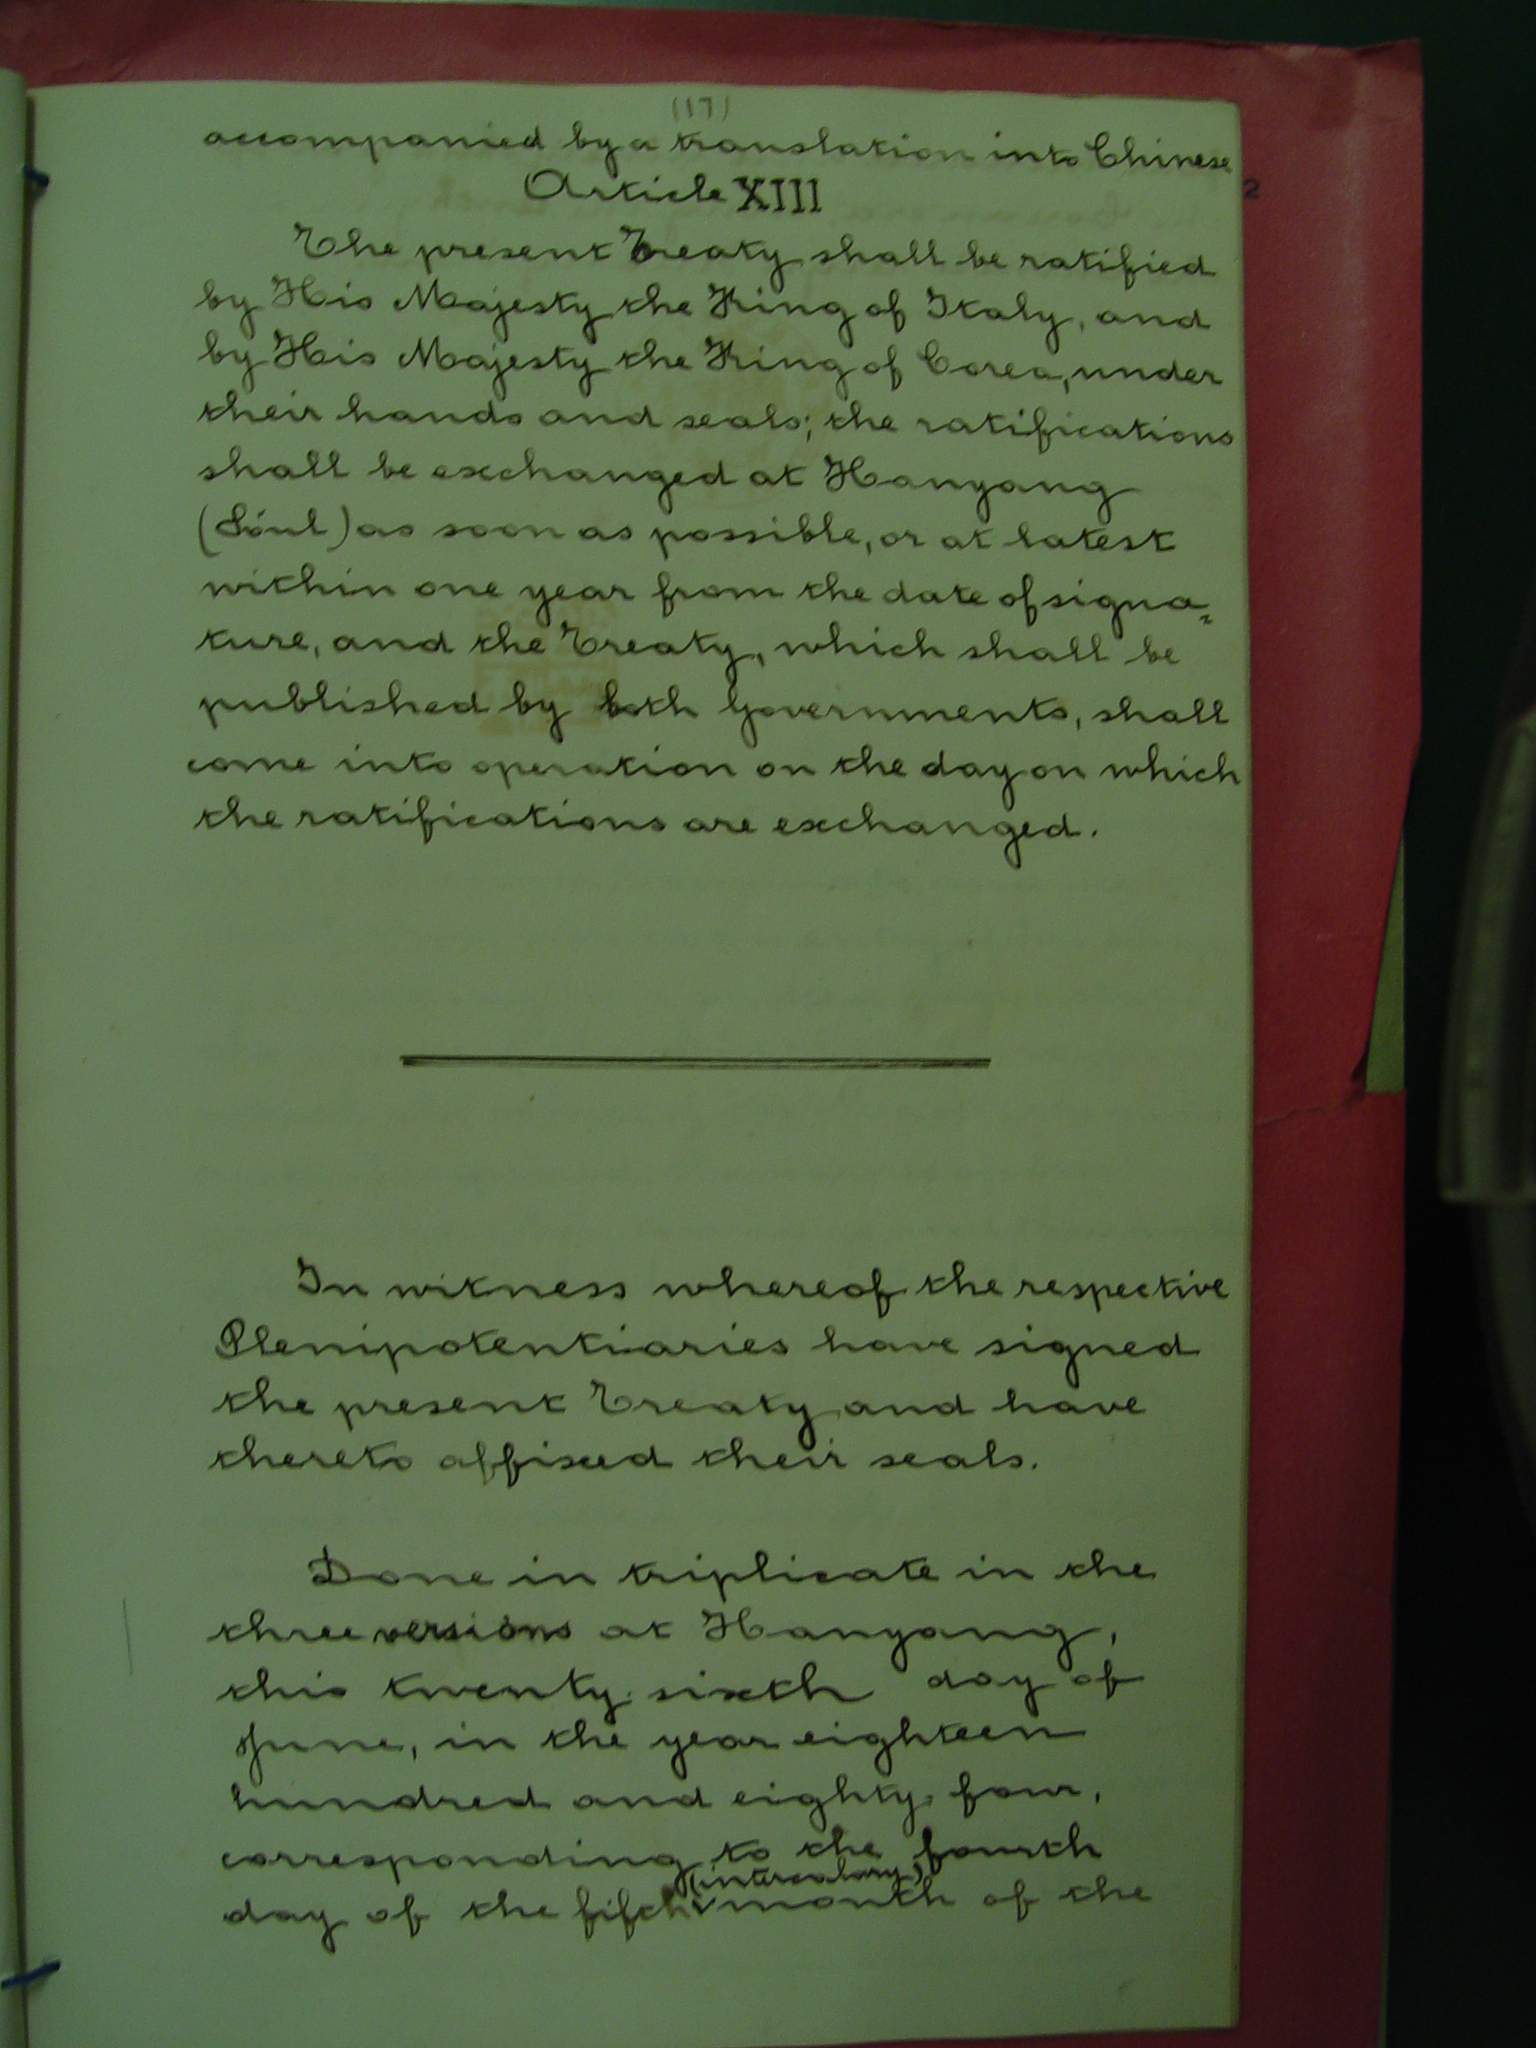 (17)
accompanied by a translation into Chinese.
Article XIII
The present Treaty shall be ratified
by His Majesty the King of Italy, and
by His Majesty the King of Corea, under
their hands and seals; the ratifications
shall be exchanged at Hanyang
(Sóul) as soon as possible, or at latest
within one year from the date of signa=
ture, and the Treaty, which shall be
published by both Governments, shall
come into operation on the day on which
the ratifications are exchanged.
In witness whereof the respective
Plenipotentiaries have signed
the present Treaty and have
thereto affixed their seals.
Done in triplicate in the
three versions at Hanyang,
this twenty sixth day of
June, in the year eighteen
hundred and eighty four,
corresponding to the fourth
(intercalary)
day of the fifth month of the
2